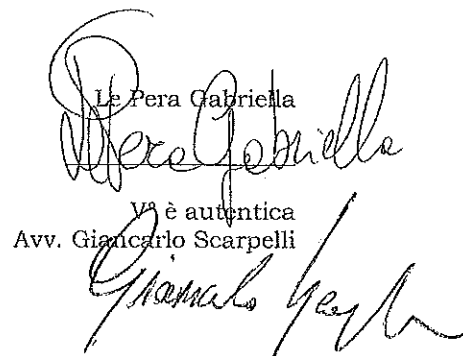 Le Pera Gabriella
Le Pera Gabriella
V° è autentica
Avv. Giancarlo Scarpelli
Giancarlo Scarpelli